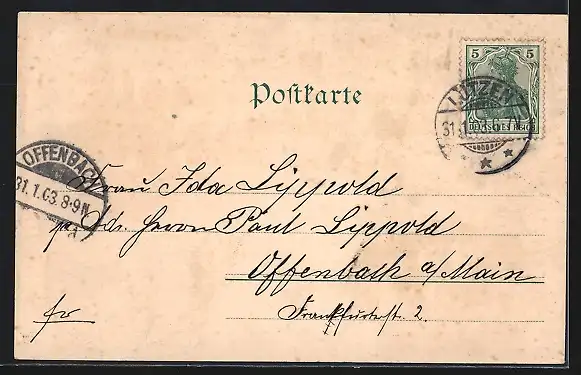 5 5
DEUTSCHES REICH
Postkarte
LÜTZEN
31.1.
OFFENBACH
31.1.03.8-9N
Frau Ida Lippold
p. Adr. Herrn Paul Lippold
Offenbach a/Main
Frankfurterstr. 2.
fr